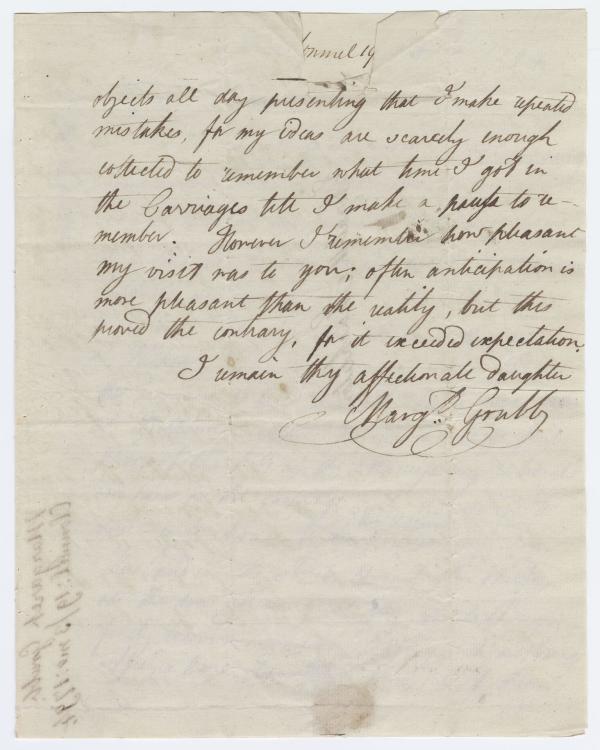 onmel 19
objects all day presenting that I make repeated
mistakes, for my ideas are scarcely enough
collected to remember what time I got in
the Carriages till I make a pause to re-
member. However I remember how pleasant
my visit was to you; often anticipation is
more pleasant than the reality, but this
proved the contrary, for it exceeded expectation.
I remain thy affectionate daughter
Margt. Grubb
Margaret Grubb
Clonmel: 19/8 mo: 179